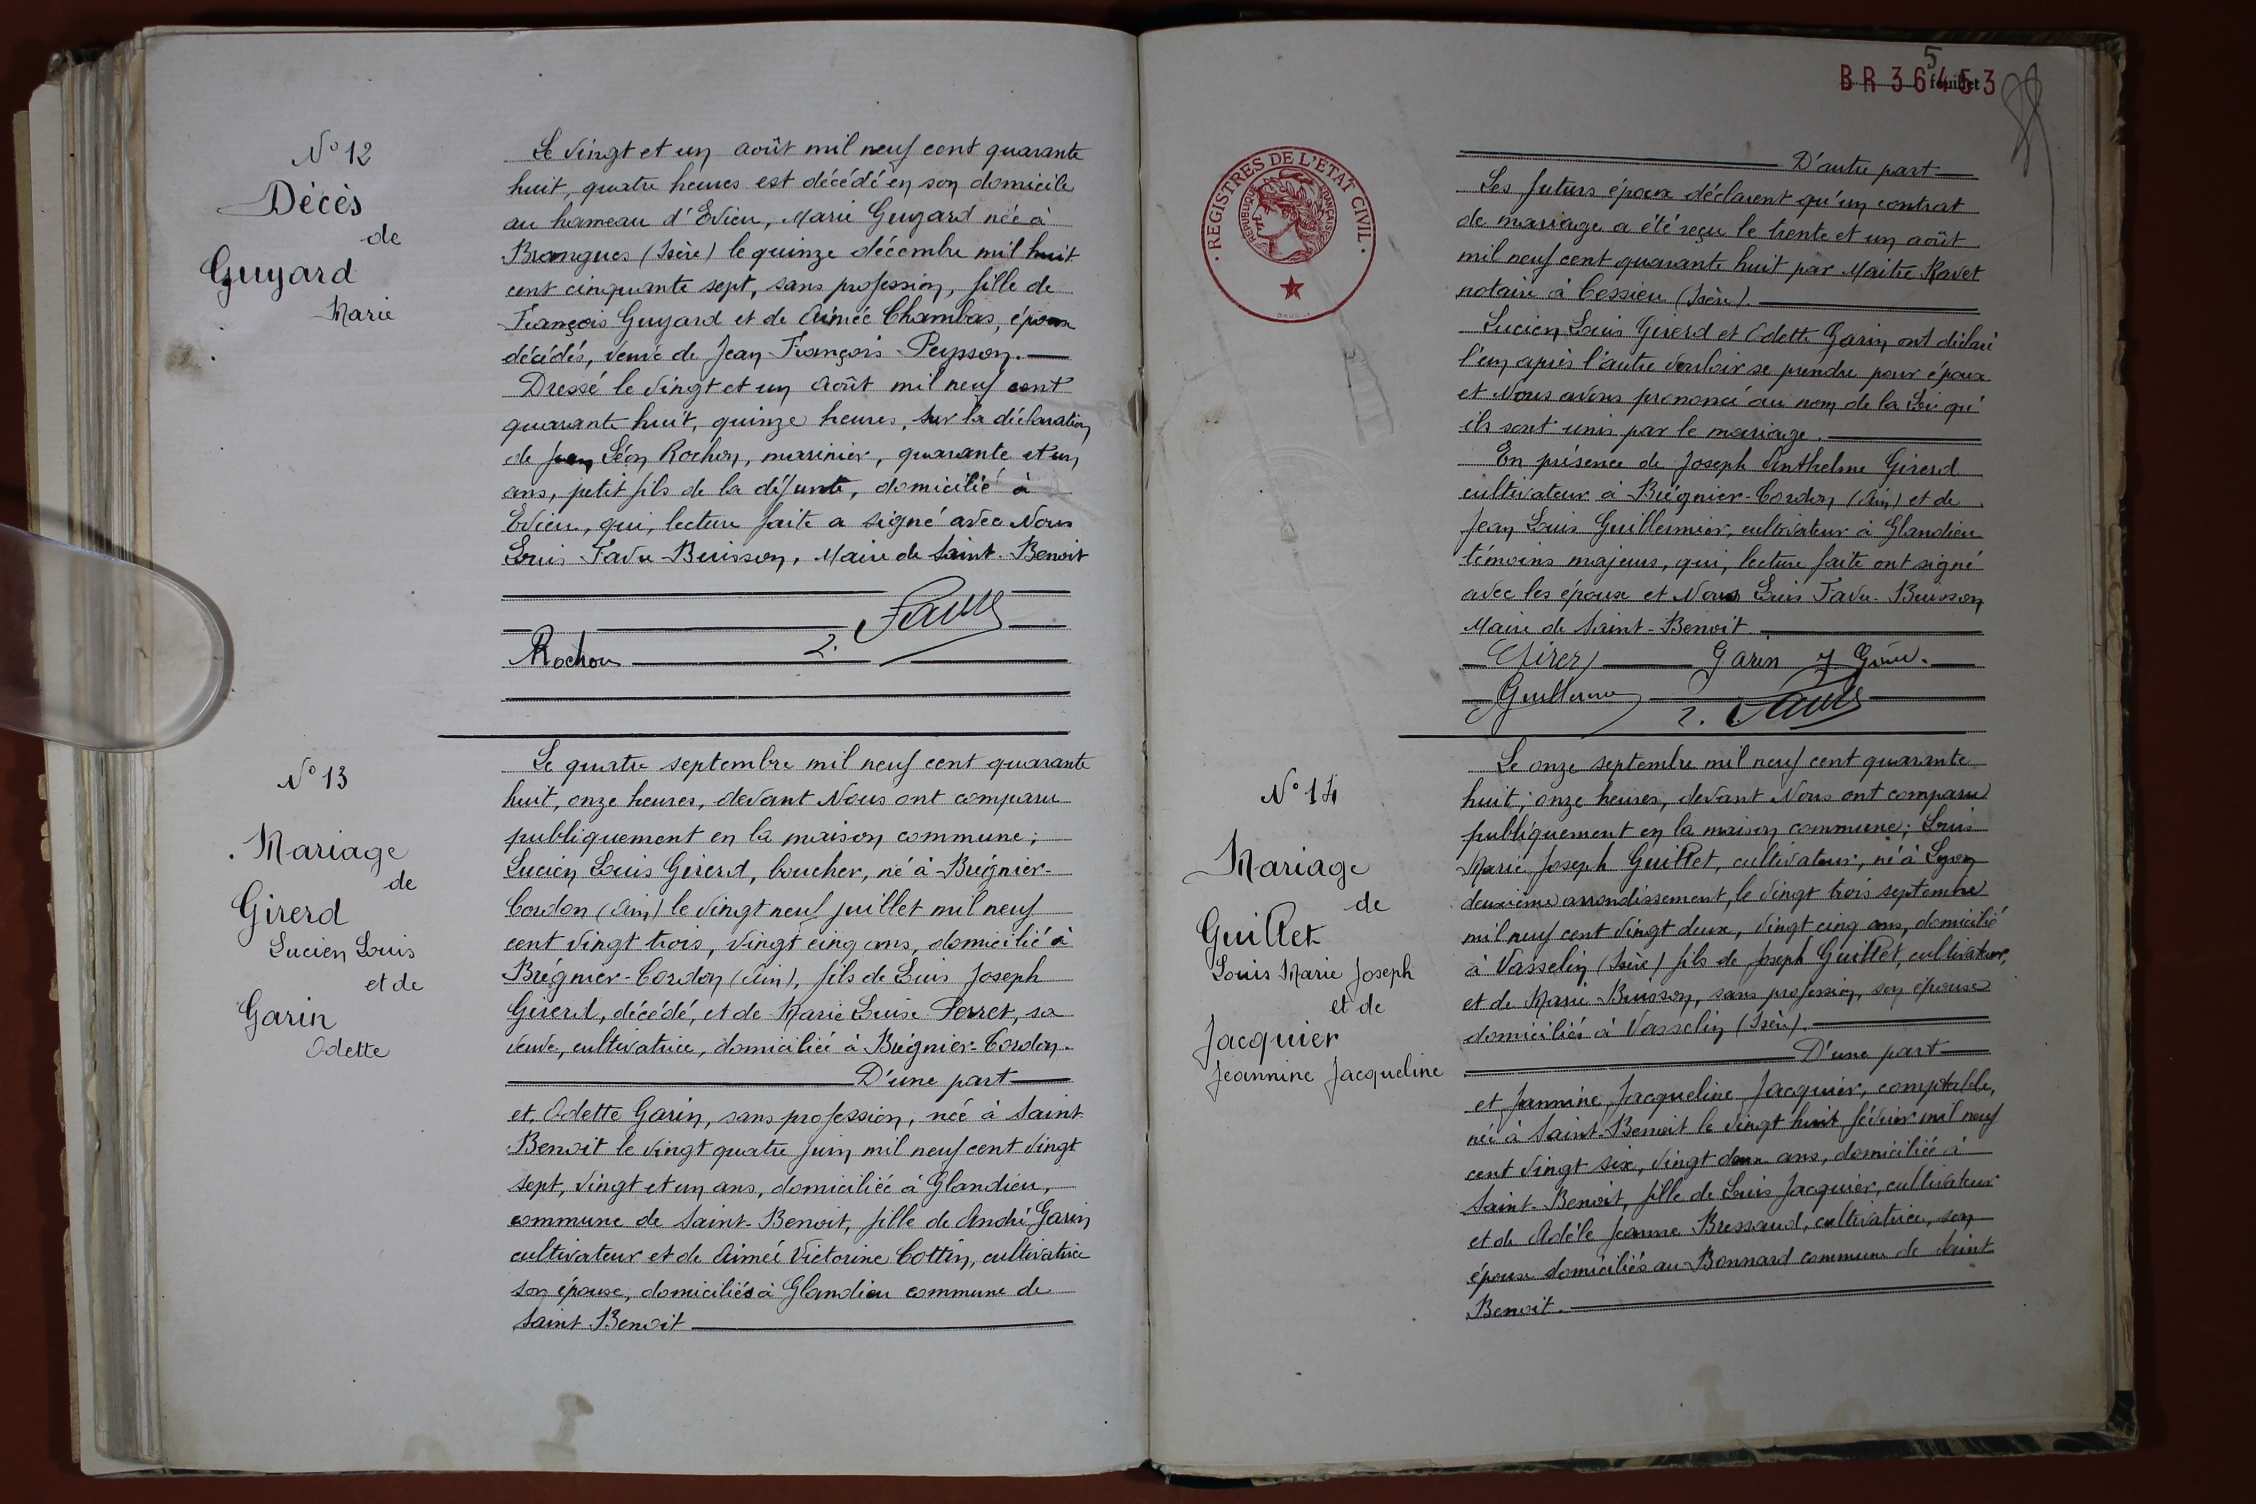 N° 12
Décès
de
Guyard
Marie
Le vingt et un août mil neuf cent quarante
huit, quatre heures est décédé en son domicile
au hameau d'Evieu, Marie Guyard née à
Brangues (Isère) le quinze décembre mil huit
cent cinquante sept, sans profession, fille de
François Guyard et de Aimée Chambas, époux
décédés, veuve de Jean François Peysson.
Dressé le vingt et un août mil neuf cent
quarante huit, quinze heures, sur la déclaration
de Jean Léon Rochon, marinier, quarante et un
ans, petit fils de la défunte, domicilié à
Evieu, qui, lecture faite a signé avec Nous
Louis Favre-Buisson, Maire de Saint-Benoit
Rochon
L. Favre
N° 13
Mariage
de
Girerd
Lucien Louis
et de
Garin
Odette
Le quatre septembre mil neuf cent quarante
huit, onze heures, devant Nous ont comparu
publiquement en la maison commune;
Lucien Louis Girerd, boucher, né à Brégnier-
Cordon (Ain) le vingt neuf juillet mil neuf
cent vingt trois, vingt cinq ans, domicilié à
Brégnier-Cordon (Ain), fils de Louis Joseph
Girerd, décédé, et de Marie Louise Perret, sa
veuve, cultivatrice, domiciliée à Brégnier-Cordon.
D'une part
et, Odette Garin, sans profession, née à Saint-
Benoit le vingt quatre juin mil neuf cent vingt
sept, vingt et un ans, domiciliée à Glandieu,
commune de Saint-Benoit, fille de André Garin
cultivateur et de Aimée Victorine Cottin, cultivatrice
son épouse, domiciliés à Glandieu commune de
Saint Benoit
5
feuillet
BR 36453
REGISTRES DE L'ÉTAT CIVIL
RÉPUBLIQUE FRANÇAISE
D'autre part
Les futurs époux déclarent qu'un contrat
de mariage a été reçu le trente et un août
mil neuf cent quarante huit par Maitre Ravet
notaire à Cessieu (Isère).
Lucien Louis Girerd et Odette Garin ont déclaré
l'un après l'autre vouloir se prendre pour époux
et Nous avons prononcé au nom de la Loi qu'
ils sont unis par le mariage.
En présence de Joseph Anthelme Girerd
cultivateur à Brégnier-Cordon (Ain) et de
Jean Louis Guillermier, cultivateur à Glandieu
témoins majeurs, qui, lecture faite ont signé
avec les époux et Nous Louis Favre-Buisson
Maire de Saint-Benoit
Girerd Garin
L. Favre
N° 14
Mariage
de
Guillet
Louis Marie Joseph
et de
Jacquier
Jeannine Jacqueline
Le onze septembre mil neuf cent quarante
huit; onze heures, devant Nous ont comparu
publiquement en la maison commune; Louis
Marie Joseph Guillet, cultivateur, né à Lyon
deuxième arrondissement, le vingt trois septembre
mil neuf cent vingt deux, vingt cinq ans, domicilié
à Vasselin (Isère) fils de Joseph Guillet, cultivateur,
et de Marie Buisson, sans profession, son épouse
domiciliés à Vasselin (Isère).
D'une part
et Jannine Jacqueline Jacquier, comptable,
née à Saint-Benoit le vingt huit février mil neuf
cent vingt six, vingt deux ans, domiciliée à
Saint-Benoit, fille de Louis Jacquier, cultivateur
et de Adèle Jeanne Bressaud, cultivatrice, son
épouse domiciliés au Bonnard commune de Saint
Benoit.